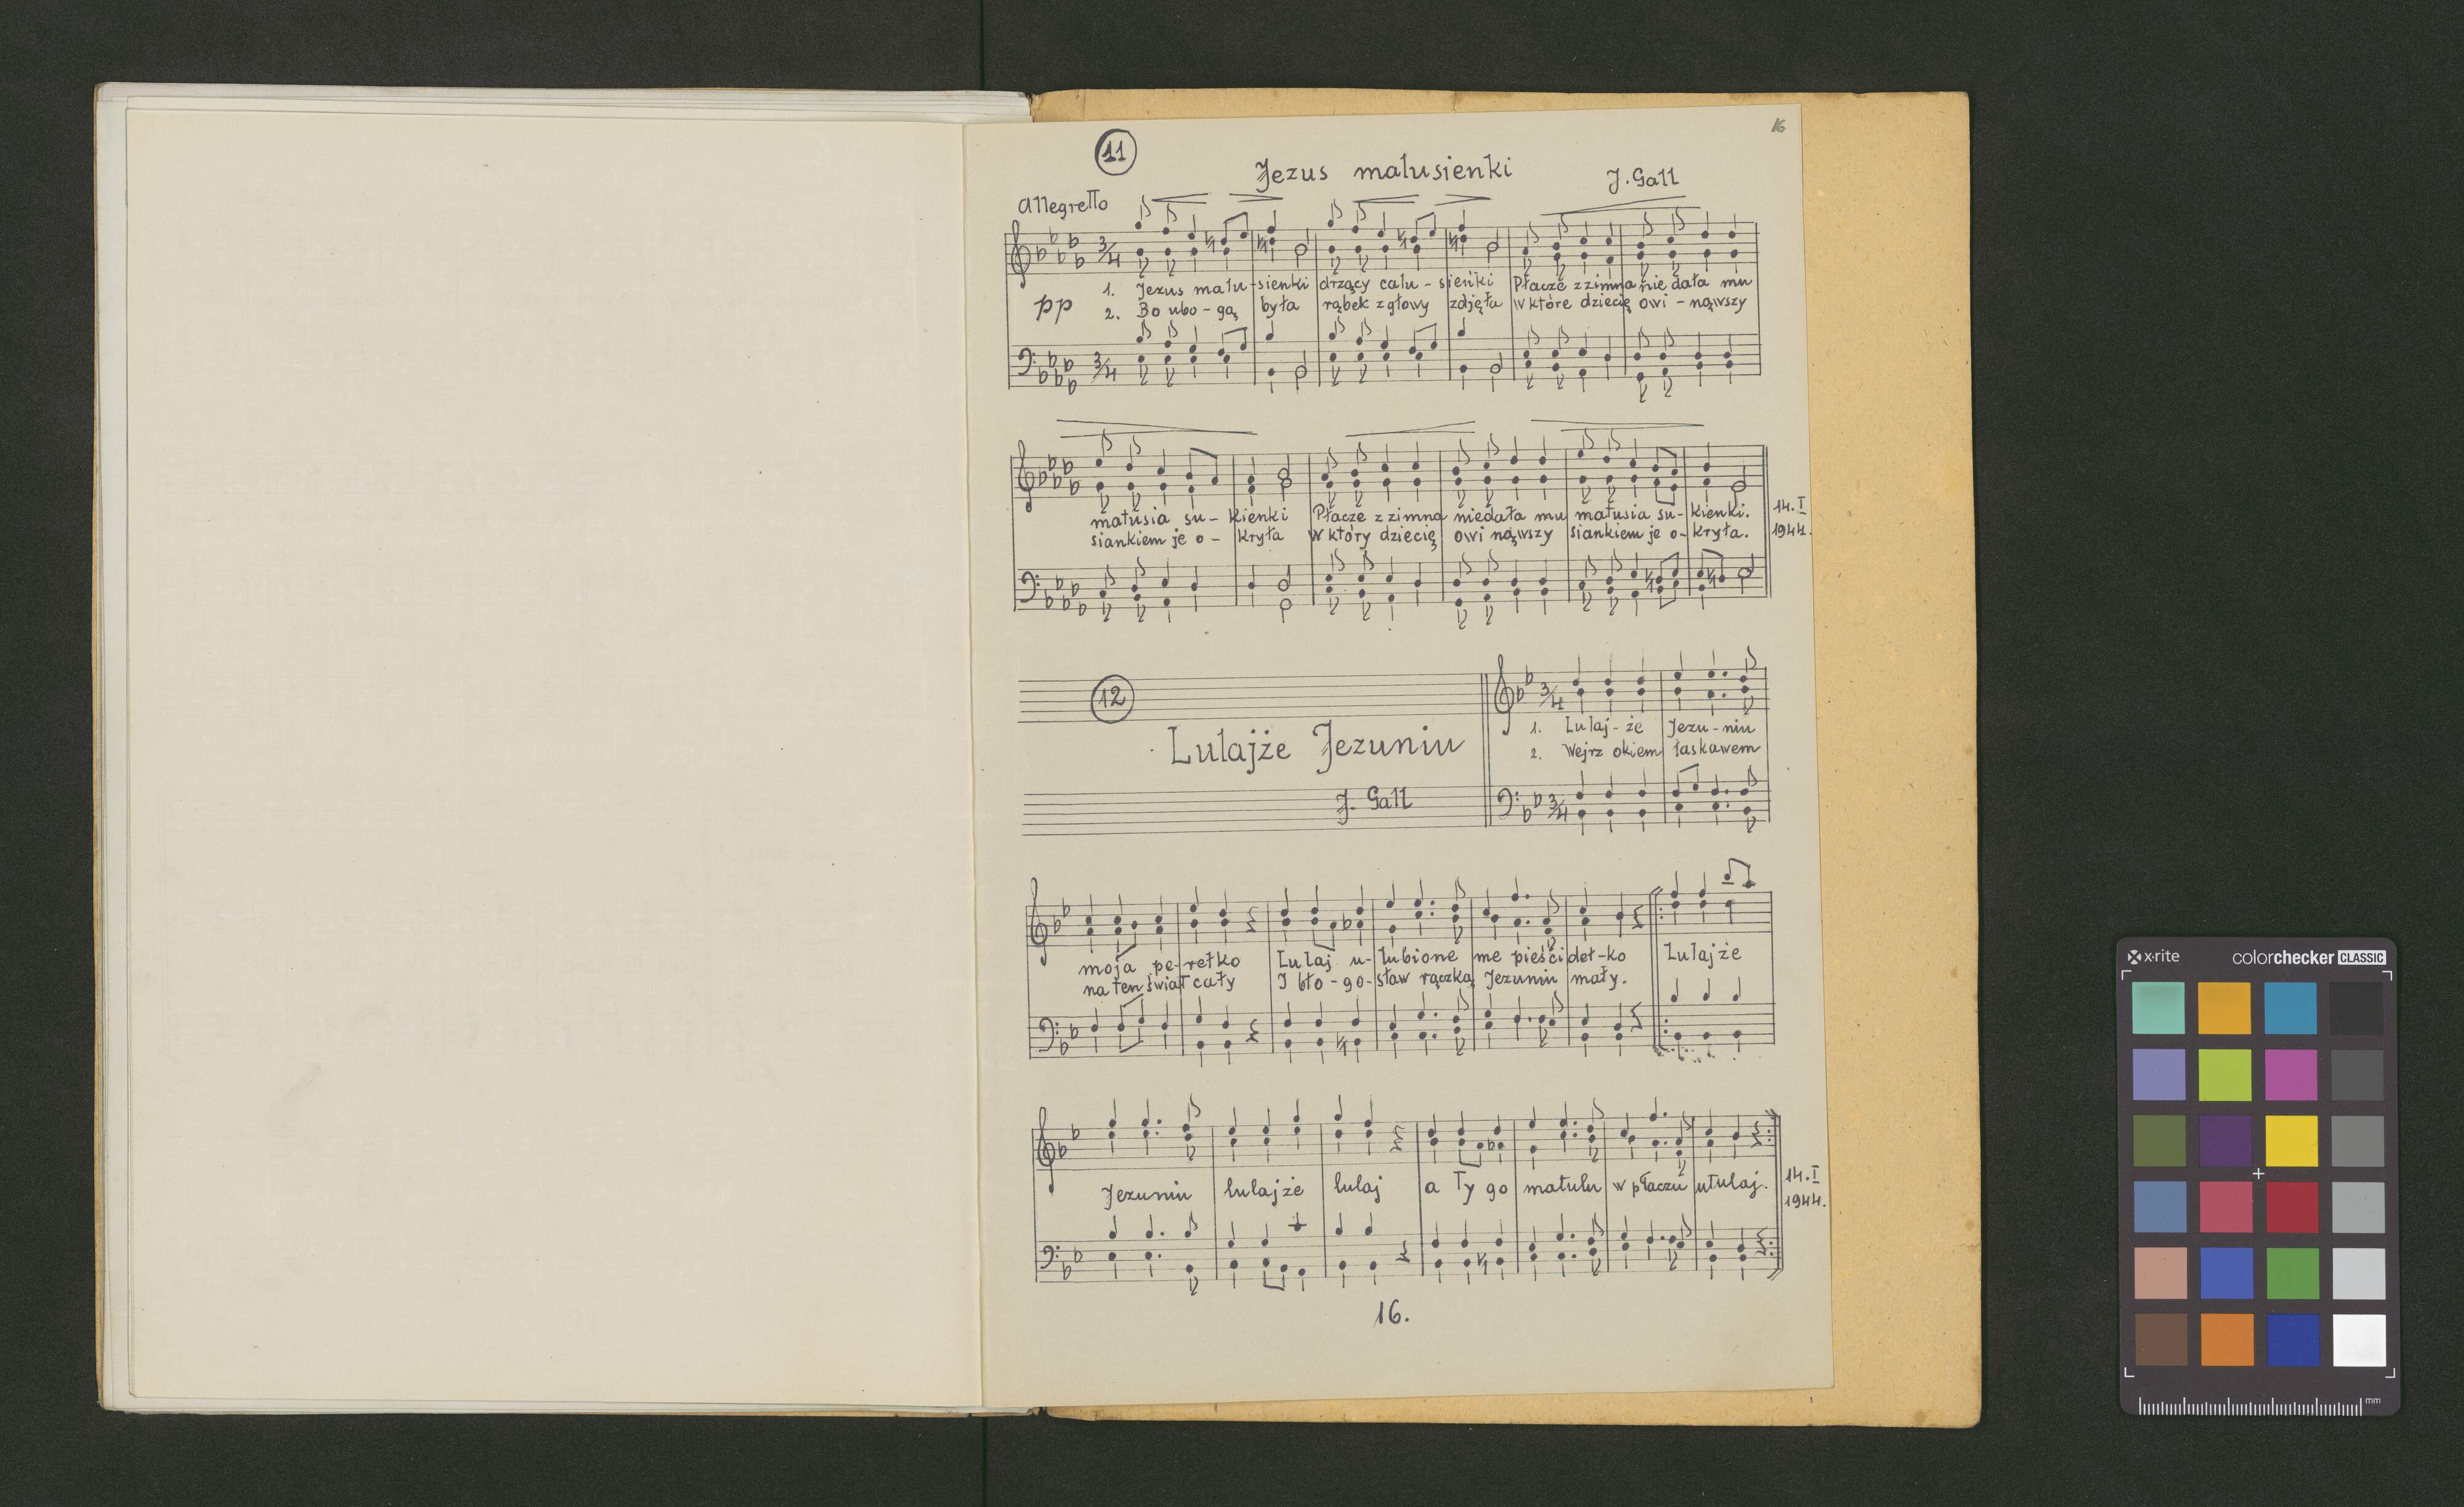 16
11
Jezus malusienki
J. Gall
Allegretto
pp
1. Jezus malu-sienki drzący calu-sieńki Płacze z zimna nie dała mu
2. Bo ubo-gą była rąbek z głowy zdjęła w które dziecię owi-nąwszy
matusia su-kienki Płacze z zimna niedała mu matusia su-kienki.
siankiem je o-kryła W który dziecię owi nąwszy siankiem je o-kryła.
14.I
1944.
12
Lulajże Jezuniu
J. Gall
1. Lulaj-że Jezu-niu
2. Wejrz okiem łaskawem
moja pe-rełko Lulaj u-lubione me pieści deł-ko Lulajże
na ten świat cały I bło-go-sław rączką Jezuniu mały.
Jezuniu lulajże lulaj a Ty go matulu w płaczu utulaj.
14.I
1944.
16.
x·rite colorchecker CLASSIC
mm